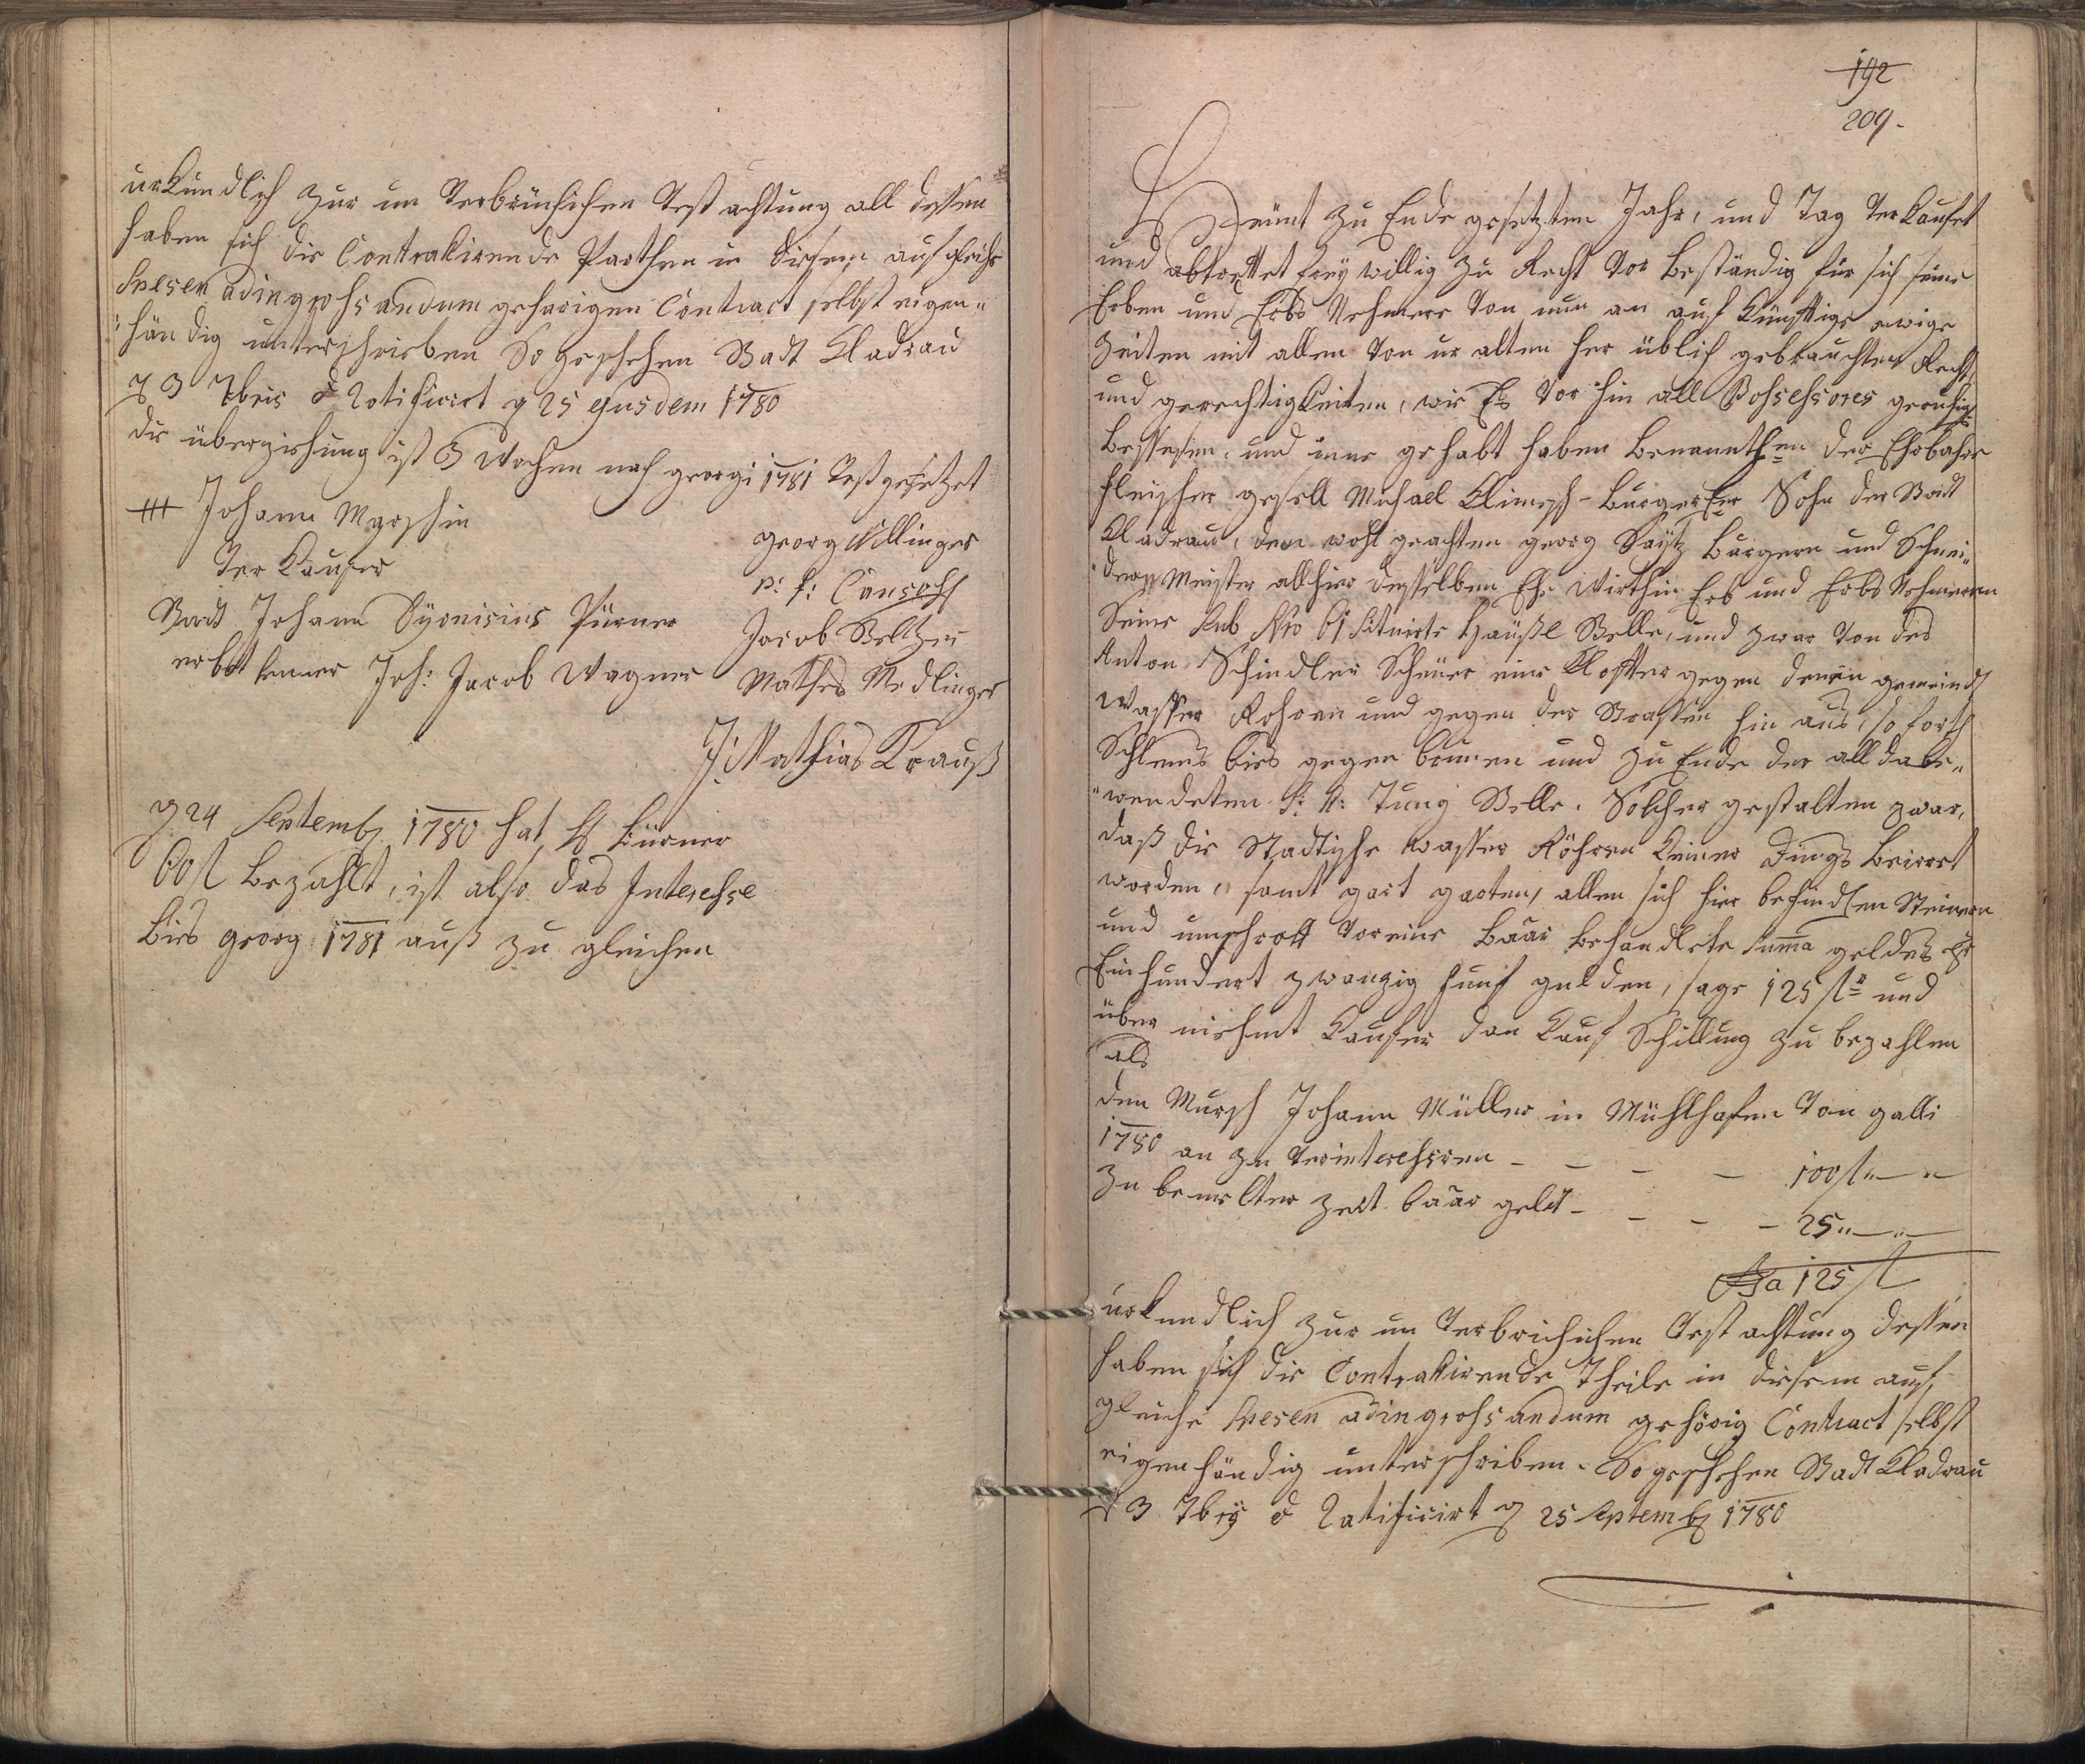 urkundlich zur un verbrüchichen vest achtung all dessen
haben sich die Contrahirende Parthen in diesem auf gleiche
Spesen ad ingrohsandum gehorigen Contract selbst eigen„
händig unterschrieben So geschehen Stadt Kladrau
d 3 7bris & Ratificirt d 25 ejusdem 1780
die überziehung ist 3 Wochen nach georgi 1781 vest gesetzet
+++ Johann Marschin
ver Kaufer
georg Willinger
p: t: Canc
Stadt Johann Dyonisius Pürner
Jacob Beltzer
erbettener Joh: Jacob Wagner
Mathes Medlinger
J: Mathias Krauß
d 24 Septemb 1780 hat H Pürner
60 fl bezahlt, ist also das Interehse
bies georg 1781 auß zu gleichen
192
209.
Heünt zu Ende gesetzten Jahr, und Tag verkaufet
und abtrettet freÿ willig zu Recht vor beständig für sich seine
Erben und Erbs Nehmere von nun an auf künftige ewige
Zeiten mit allen von ur alten her üblich gebrauchten Recht
und gerechtigkeiten, wie Es vor hin all Pohsehsores geruhig
besessen, und inne gehabt haben benannthen der Ehrbahre
fleischer gesell Michael Klimesch - burgerser Sohn der Stadt
Kladrau, dem wohl geachten georg Saÿtz burgern und Schnei„
„der Meister allhier desselben Ehe Wirthin Erb und Erbs Nehmeren
Seine sub Nro 61 situirte Häußl Stelle, und zwar von des
Anton Schindler Scheuer eine Klaffter gegen denen gemeind
Wasser Rohren und gegen der Strassen hin aus, so forth
Schlems bies gegen brunen und zu Ende der all dabe„
„wendeten S: V: Tung Stelle. Solcher gestalten zwar,
daß die Stadtische wasser Röhren keiner Dings beirret
worden, samt gart garten, allen sich hier befindlen Steinern
und umschrott vor eine baar behandlete Suma geldes
Einhundert zwanzig funf gulden, sage 125 fl und
über niehmt kaufer den Kauf Schilling zu bezahlen
als
den Mursch Johann Müller in Mühlhafen von galli
1780 an zu verinterehsiren - - - - 100 fl „ — „
Zu bemelter zeit baar geld - - - - 25 „ — „ —
Sa 125 fl
urkundlich zur un verbrichichen vest achtung dessen
haben sich die Contrahirende Theile in diesem auf
gleiche Spesen ad ingrohsandum gehörig Contract selbst
eigenhändig unterschriben. So geschehen Stadt Kladrau
d 3 7bris & Ratificirt d 25 Septemb 1780